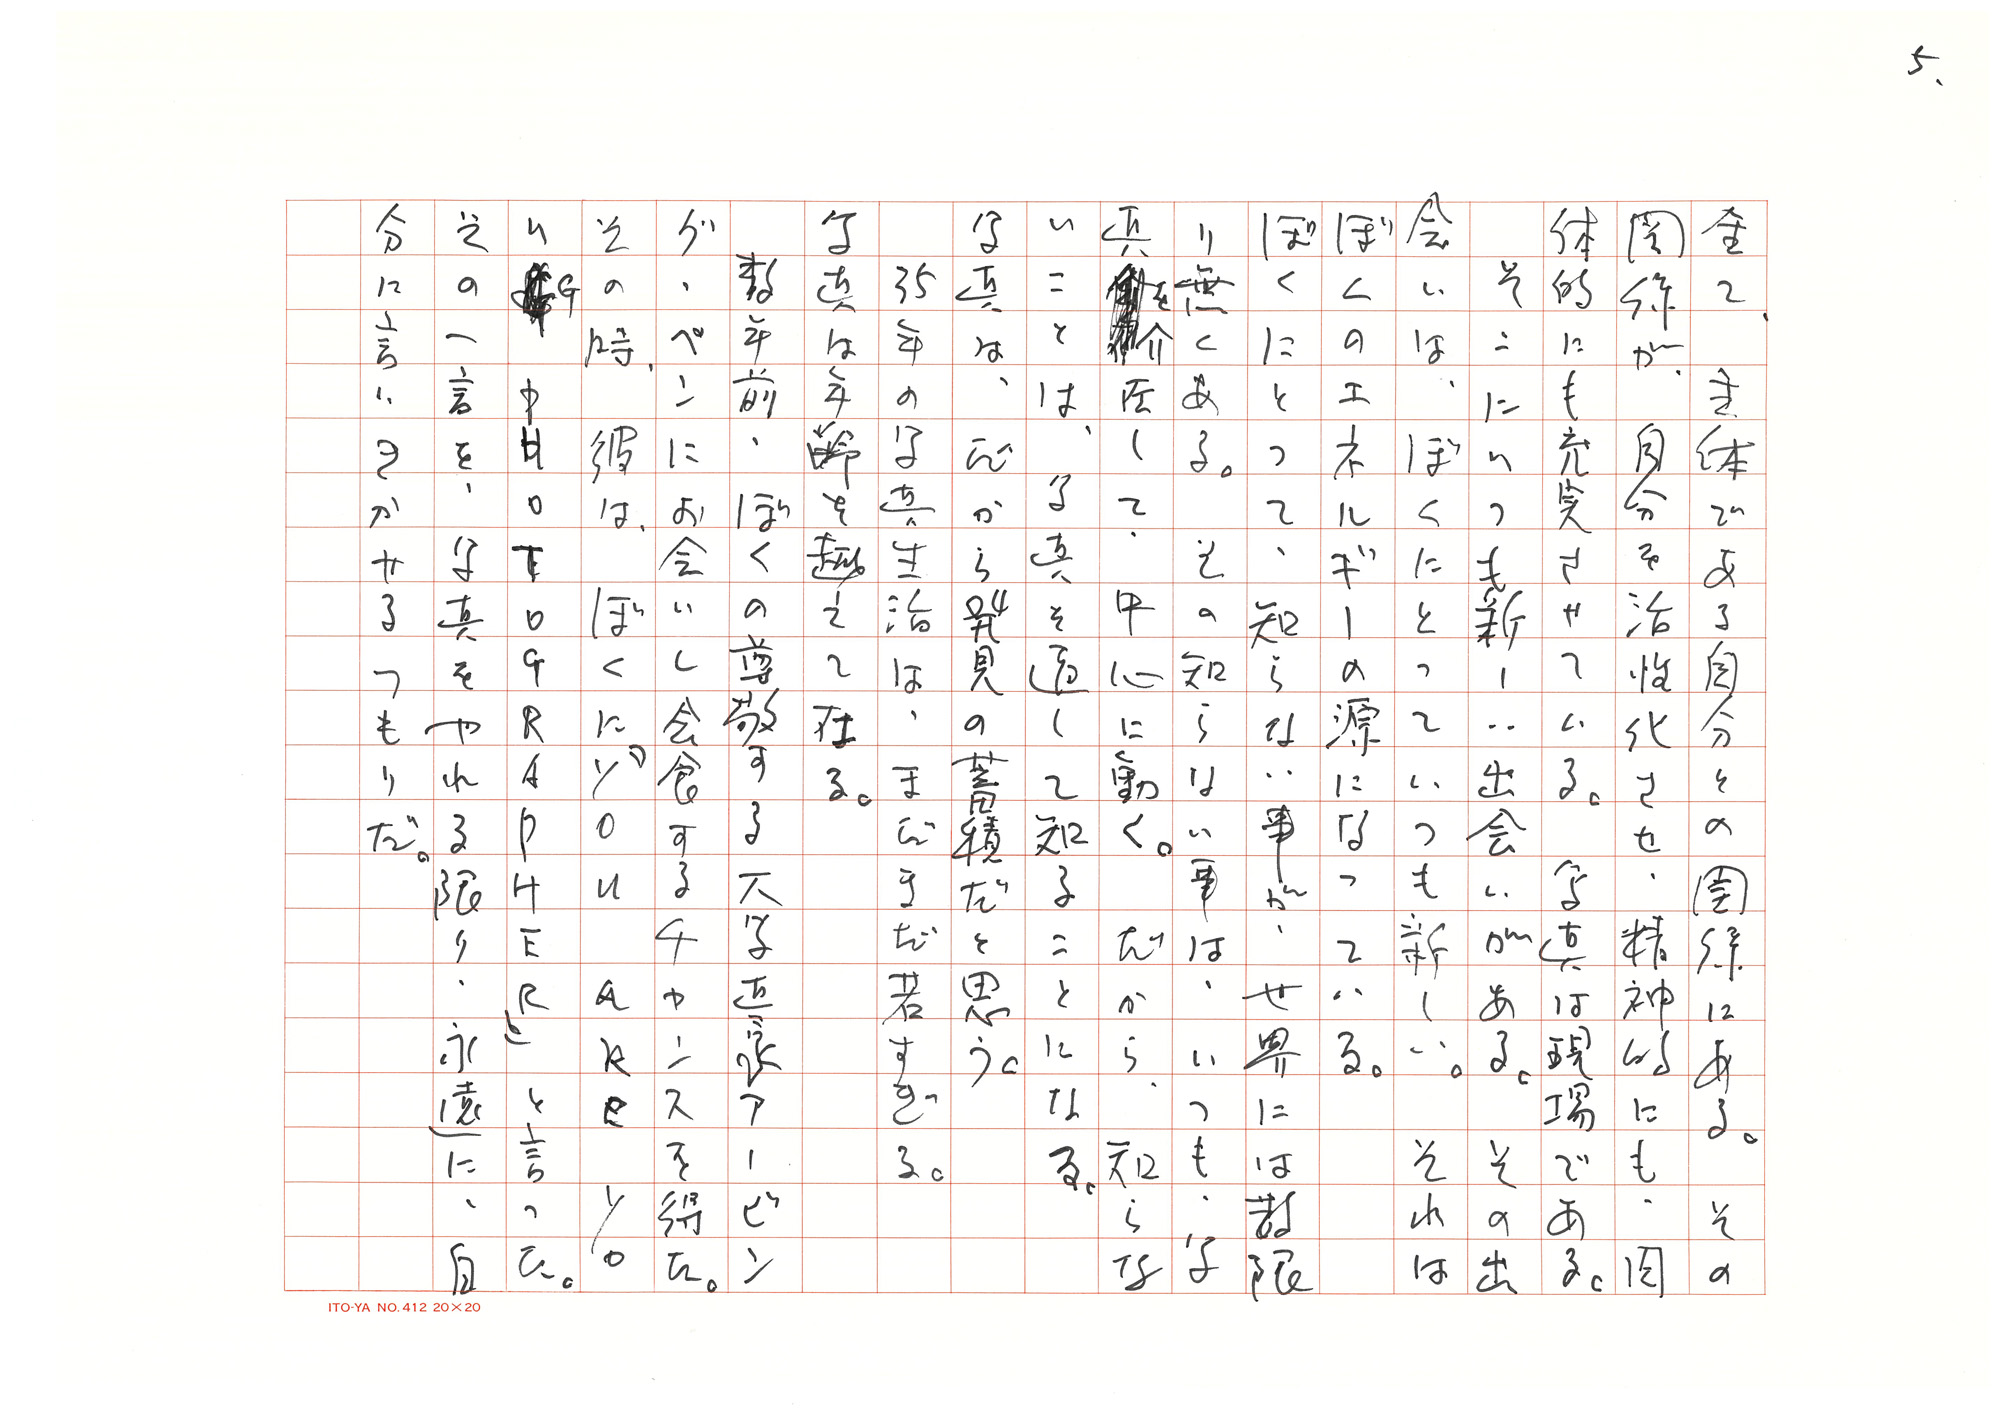 5.
全て、主体である自分との関係にある。その
関係が、自分を活性化させ、精神的にも、肉
体的にも充実させている。写真は現場である。
そこにいつも新しい出会いがある。その出
会いは、ぼくにとっていつも新しい。それは
ぼくのエネルギーの源になっている。
ぼくにとって、知らない事が、せ界には数限
り無くある。その知らない事は、いつも、写
真を介在して、中心に動く。だから、知らな
いことは、写真を通して知ることになる。
写真は、だから発見の蓄積だと思う。
35年の写真生活は、まだまだ若すぎる。
写真は年齢を越えて在る。
数年前、ぼくの尊敬する大写真家アービン
グ・ペンにお会いし会食するチャンスを得た。
その時、彼は、ぼくに〝YOU ARE YO
UNG PHOTOGRAPHER〟と言った。
その一言を、写真をやれる限り、永遠に、自
分に言いきかせるつもりだ。
ITO-YA NO.412 20×20